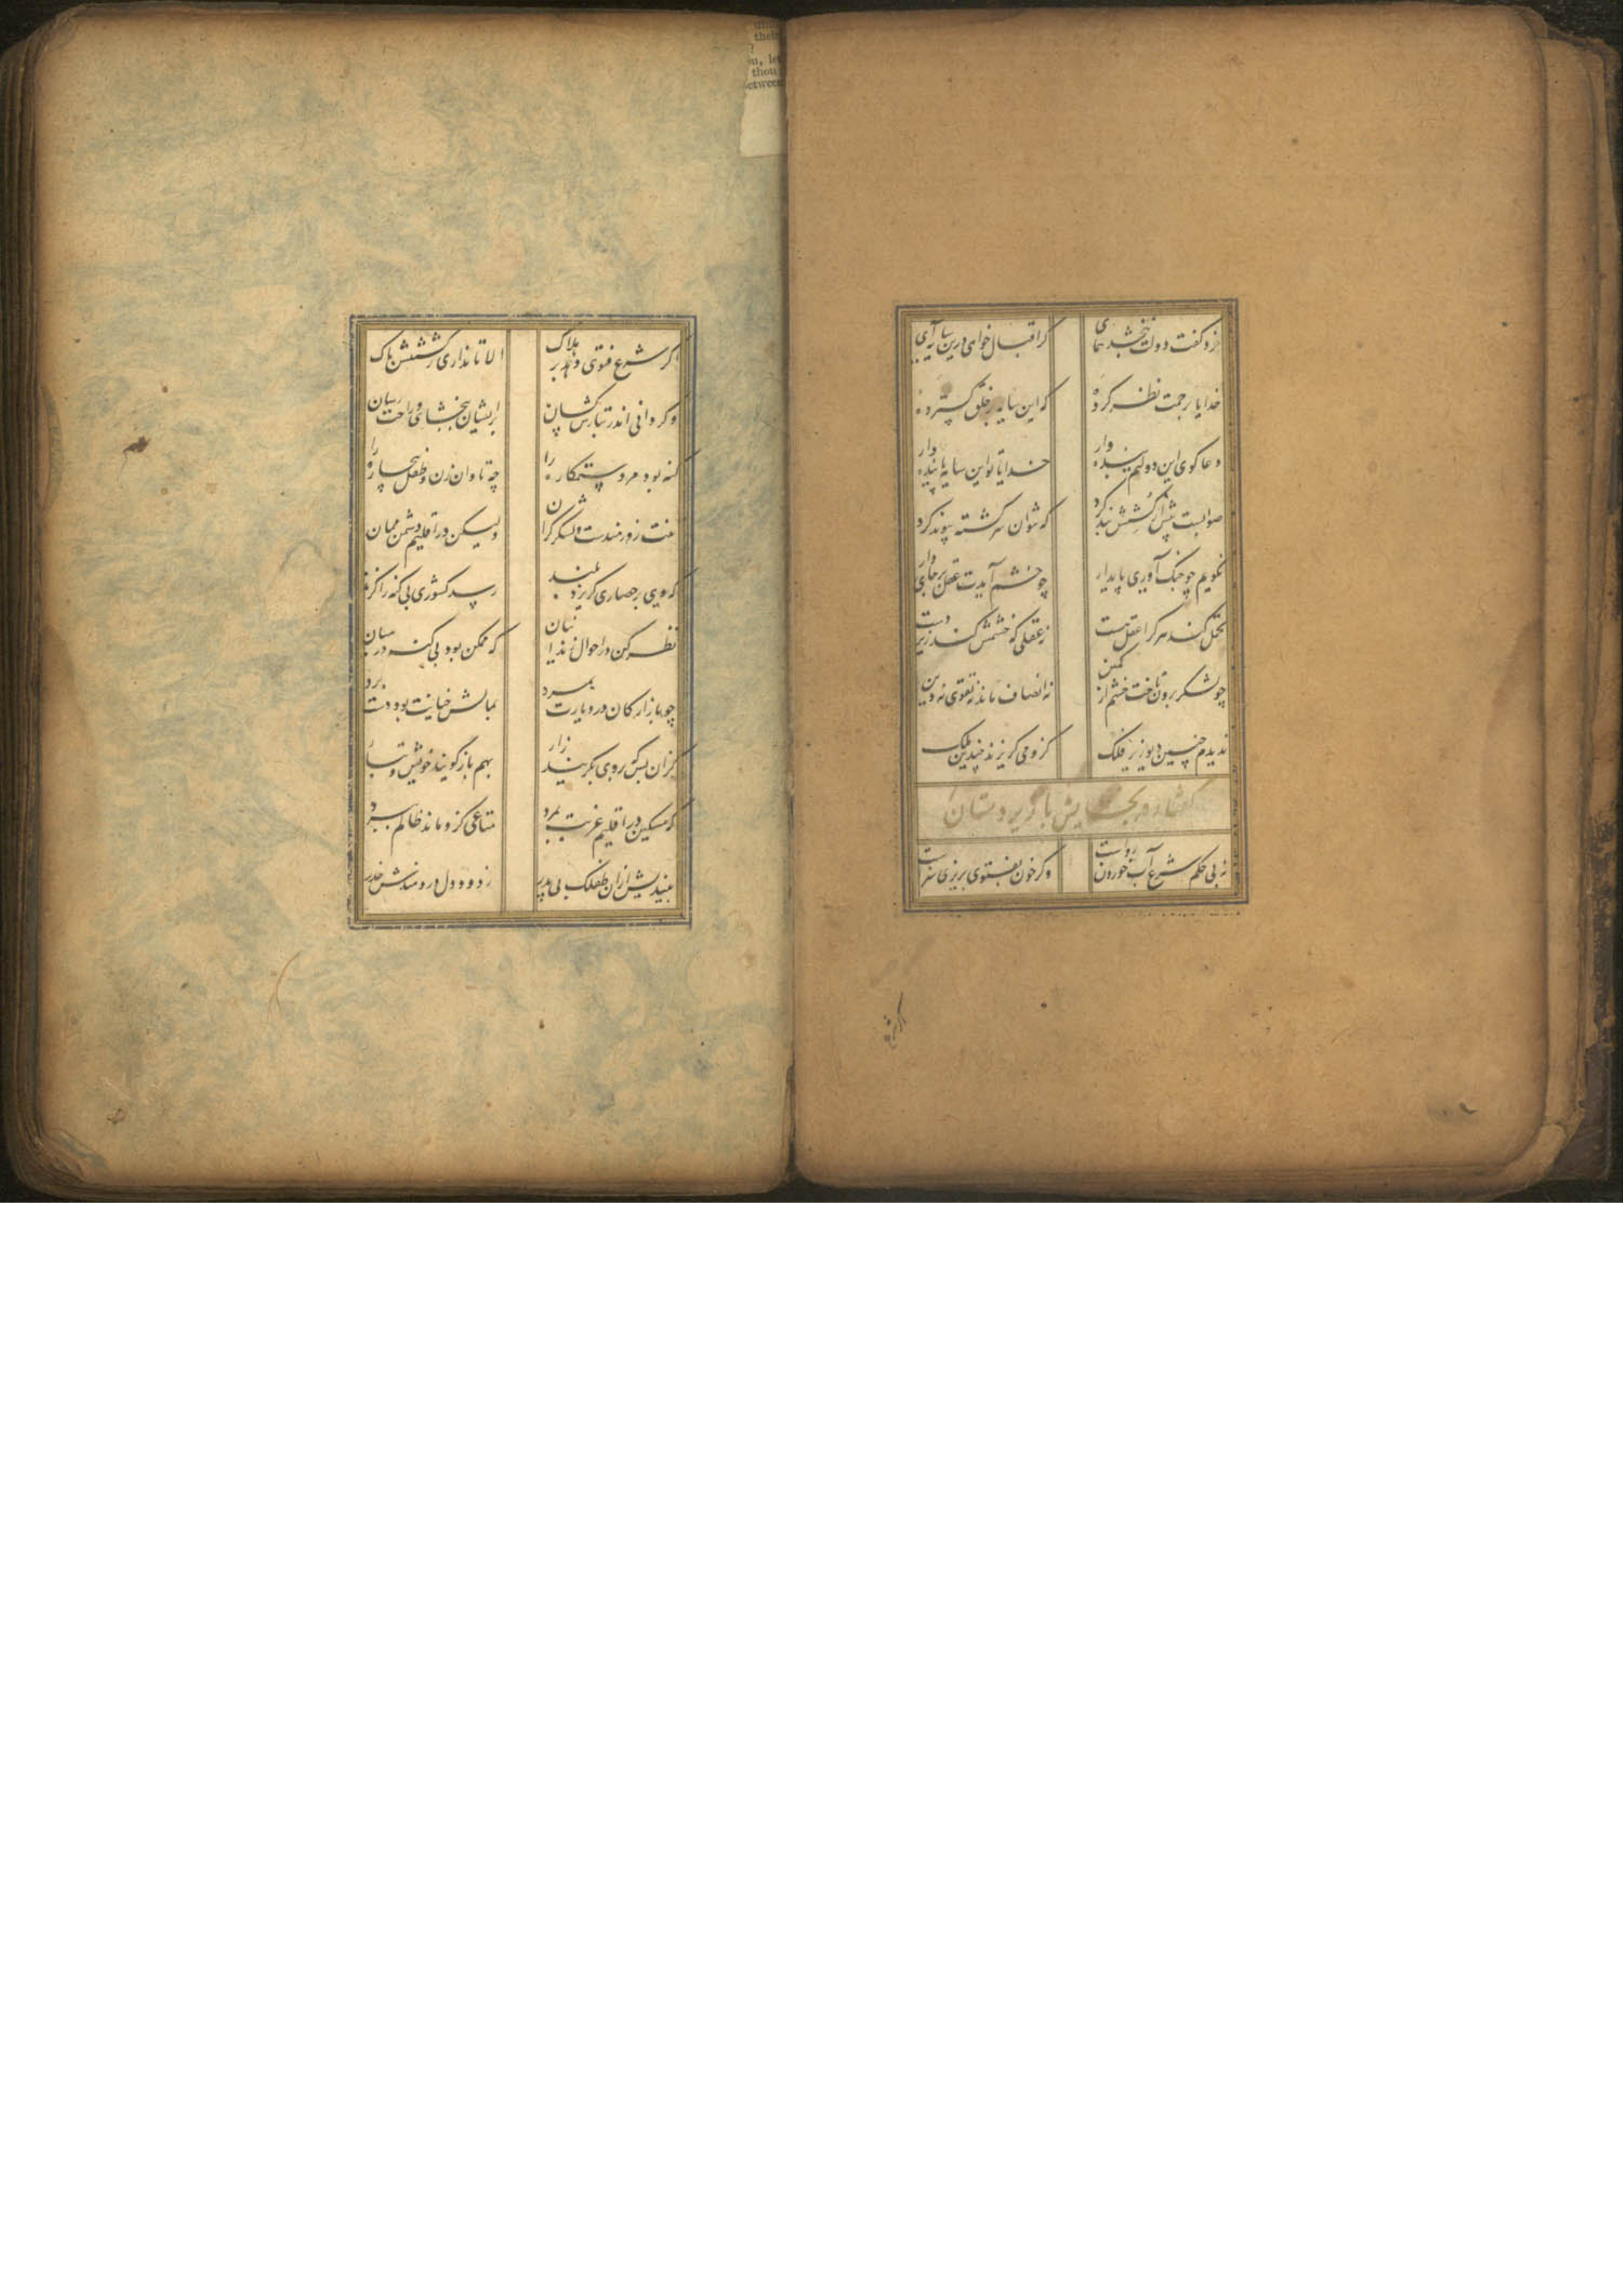 خرد گفت دولت نبخشد همای
گر اقبال خواهی درین سایه آی
خدایا برحمت نظر کرده
که این سایه بر خلق گسترده
دعا گوی این دولتم بنده وار
خدایا تو این سایه پاینده دار
صوابست پیش از کشش بند کرد
که نتوان سر کشته پیوند کرد
نگویم چو جنگ آوری پایدار
چو خشم آیدت عقل برجای دار
تحمل کند هر کرا عقل هست
نه عقلی که خشمش کند زیر دست
چو لشکر برون تاخت خشم از کمین
نه انصاف ماند نه تقوی نه دین
ندیدم چنین دیو زیر فلک
کزو می گریزند چندین ملک
گفتار در بخشایش بر زیردستان
نه بی حکم شرع آب خوردن رواست
وگر خون بفتوی بریزی سزاست
اگر شرع
اگر شرع فتوی دهد بر هلاک
الا تا نداری ز کشتنش باک
وگر دانی اندر تبارش کسان
بریشان ببخشای و راحت رسان
گنه بود مرد ستمکاره را
چه تاوان زن و طفل بیچاره را
تنت زورمندست و لشکر گران
ولیکن در اقلیم دشمن ممان
که وی بر حصاری گریزد بلند
رسد کشوری بی گنه را گزند
نظر کن در احوال زندانیان
که ممکن بود بی گنه در میان
چو بازارگان در دیارت بمرد
بمالش خیانت بود دست برد
کزان پس که بر وی بگریند زار
بهم باز گویند خویش و تبار
که مسکین در اقلیم غربت بمرد
متاعی کزو ماند ظالم ببرد
بیندیش ازان طفلک بی پدر
ز دود دل دردمندش حذر